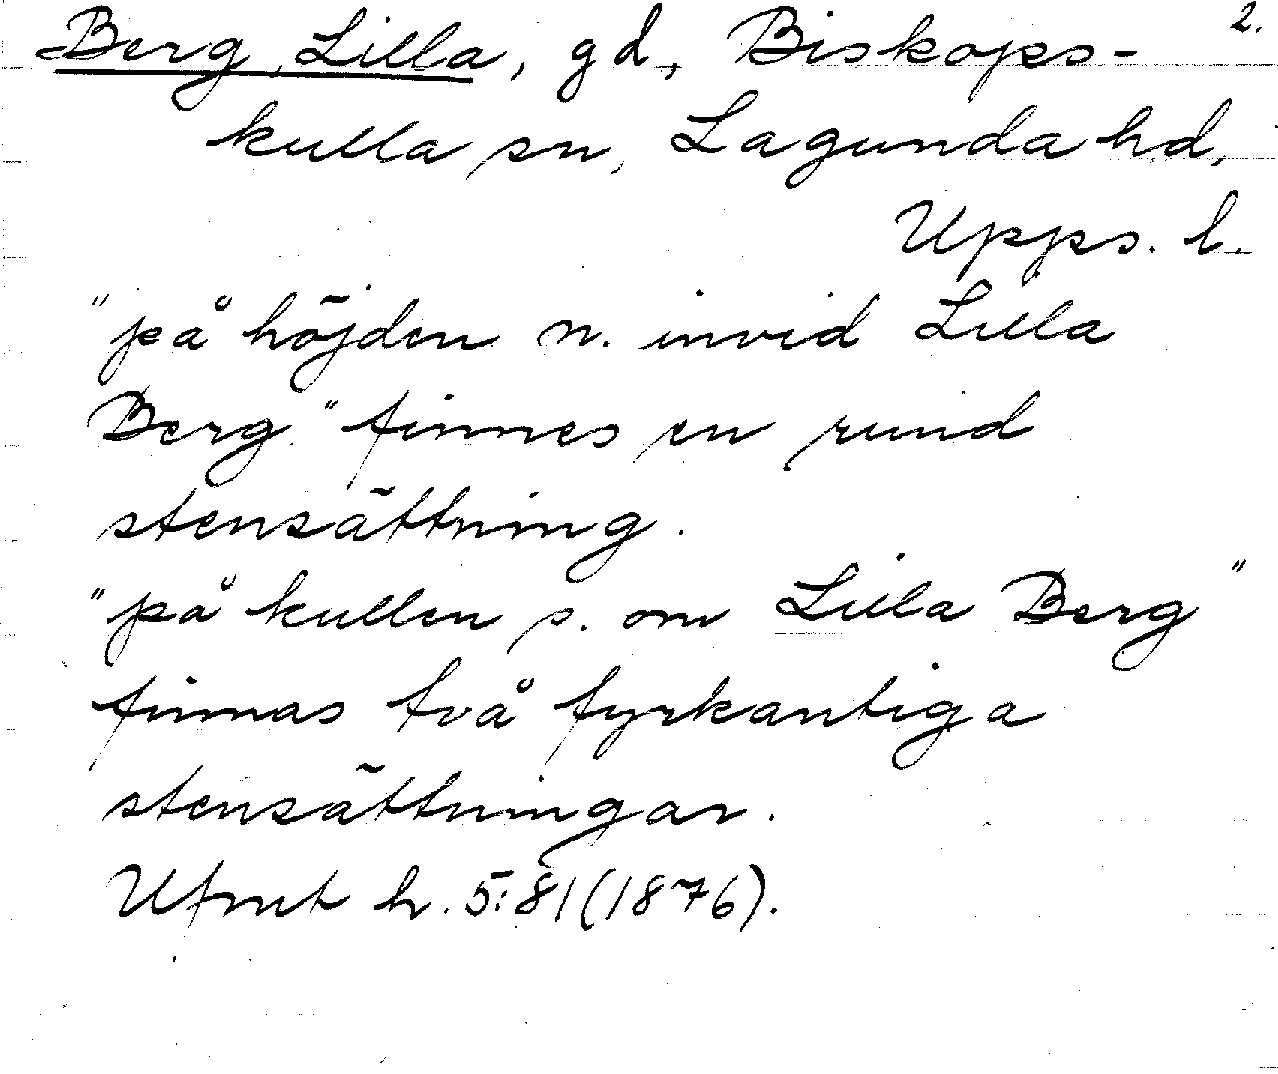 2.
Berg, Lilla, gd, Biskops-
kulla sn, Lagunda hd,
Upps. l.
"på höjden n. invid Lilla
Berg." finnes en rund
stensättning.
"på kullen s. om Lilla Berg"
finnas två fyrkantiga
stensättningar.
Ufmt h. 5:81 (1876).